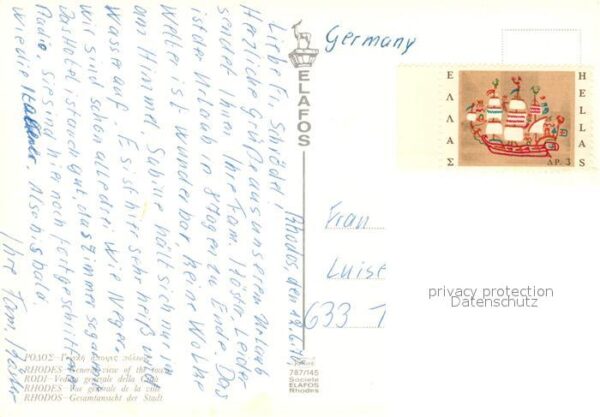 Rhodos, den 19.6.
Liebe Fr. Schrödel!
Herzliche Grüße aus unserem Urlaub
sendet Ihnen Ihre Fam. Leider
ist der Urlaub in Tagen zu Ende. Das
Wetter ist wunderbar keine Wolke
am Himmel. Sabine hält sich nur im
Wasser auf. Es ist hier sehr heiß und
wir sind schon alle drei wie Neger.
Das Hotel ist auch gut, das Zimmer sogar mit
Radio, sie sind hier noch fortgeschrittener
wie die Italiener. Also n. bald
Ihre Fam.
Germany
Frau
Luise
633
ELAFOS
787/145
Societe
ELAFOS
Rhodes
ΕΛΛΑΣ
HELLAS
ΔΡ. 3
privacy protection
Datenschutz
ΡΟΔΟΣ - Γενική άποψις πόλεως
RHODES - General view of the town
RODI - Veduta generale della Città
RHODES - Vue générale de la ville
RHODOS - Gesamtansicht der Stadt